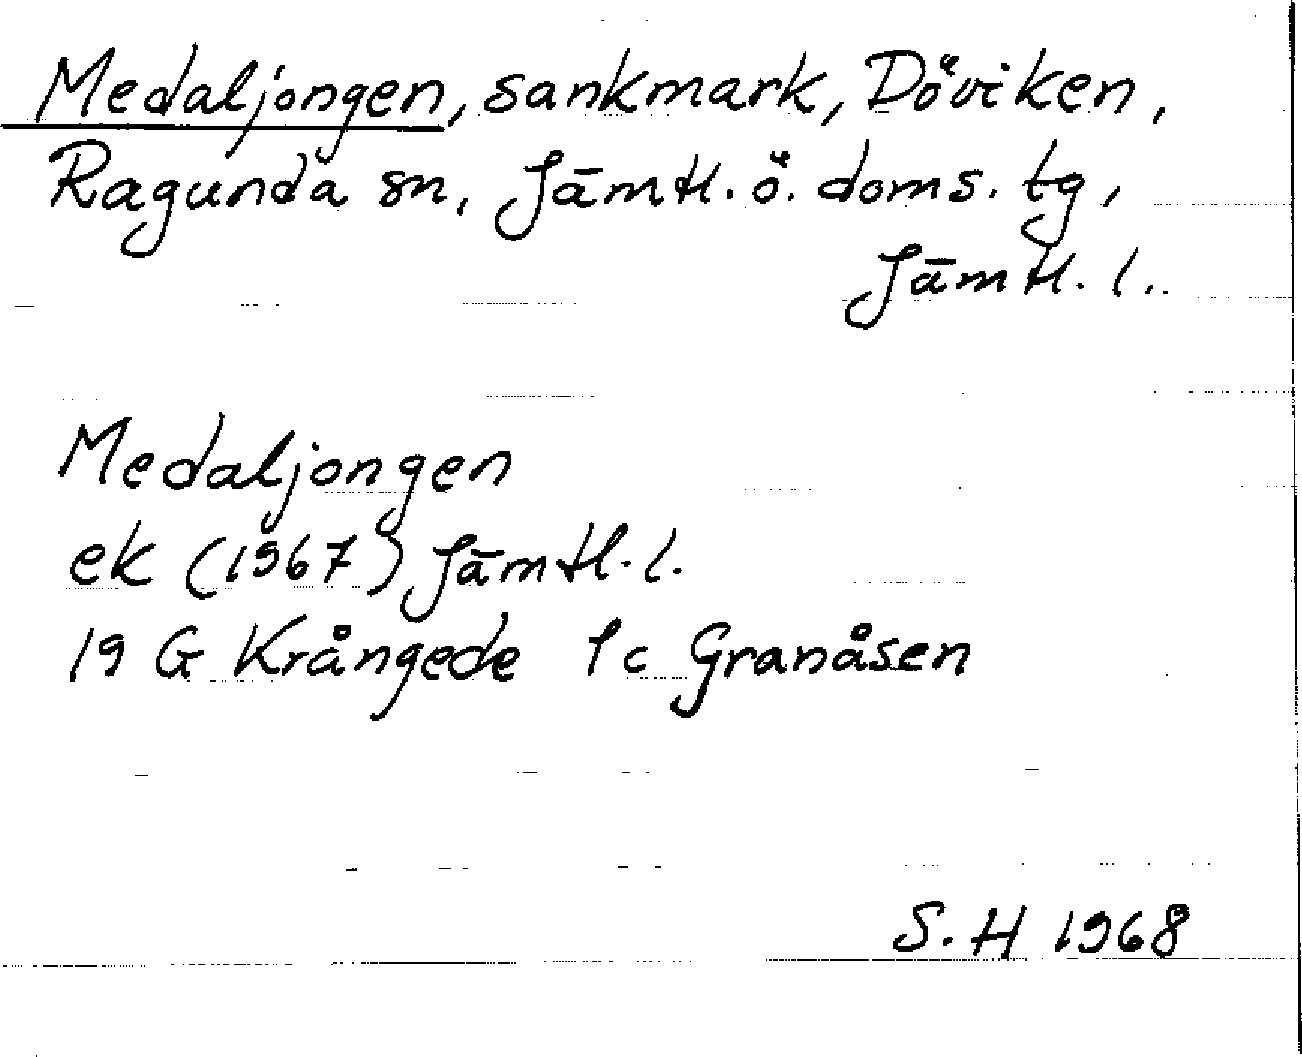 Medaljongen, sankmark, Döviken,
Ragunda sn, Jämtl. ö. doms. tg,
Jämtl. l..
Medaljongen
ek (1967) Jämtl. l.
19 G Krångede 1c Granåsen
S. H 1968